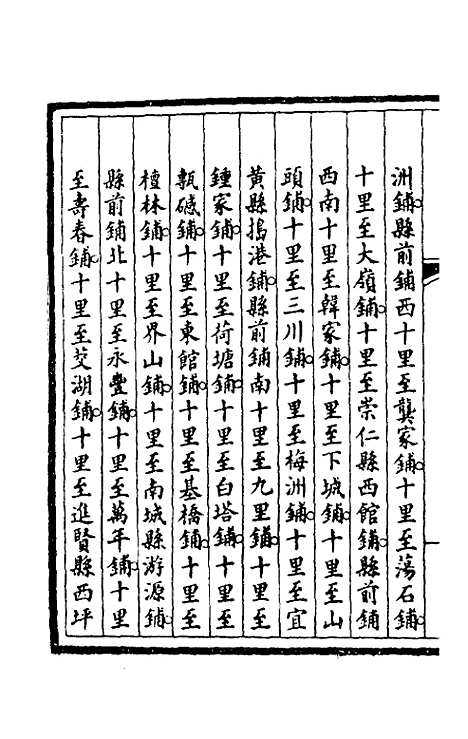 洲鋪縣前鋪西十里至龔家鋪十里至蕩石鋪
十里至大嶺鋪十里至崇仁縣西館鋪縣前鋪
西南十里至韓家鋪十里至下城鋪十里至山
頭鋪十里至三川鋪十里至梅洲鋪十里至宜
黃縣塢港鋪縣前鋪南十里至九里鋪十里至
鍾家鋪十里至荷塘鋪十里至白塔鋪十里至
瓠磩鋪十里至東館鋪十里至基橋鋪十里至
檀林鋪十里至界山鋪十里至南城縣游源鋪
縣前鋪北十里至永豐鋪十里至萬年鋪十里
至壽春鋪十里至茭湖鋪十里至進賢縣西坪